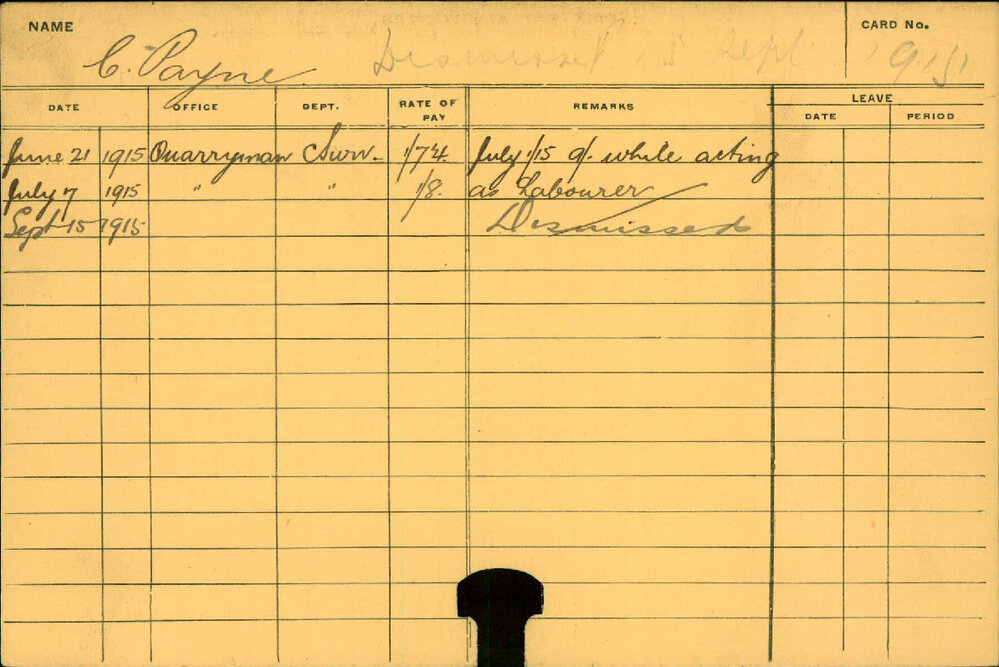 NAME
CARD No.
C. Payne Dismissed 15 Sept 1915
DATE OFFICE DEPT. RATE OF PAY REMARKS LEAVE
DATE PERIOD
June 21 1915 Quarryman Surv. 1/7¼ July 1/15 9/- while acting
July 7 1915 " " 1/8. as Labourer
Sept 15 1915 Dismissed